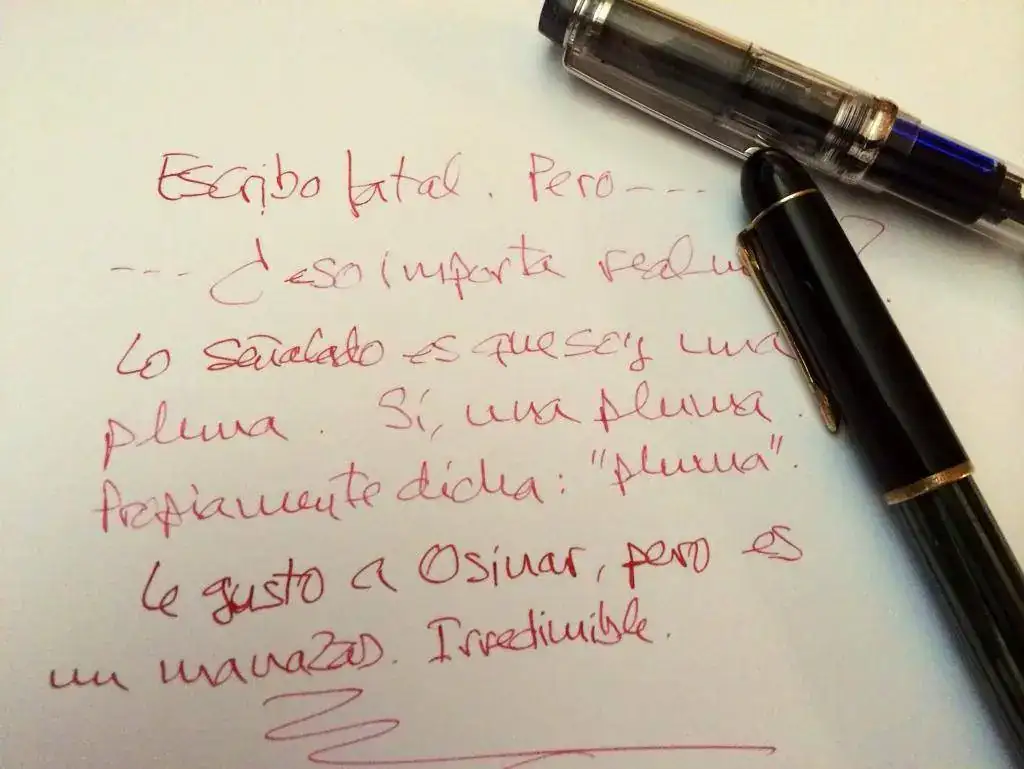 Escribo fatal. Pero - - -
- - - ¿eso importa ?
Lo señalado es que soy una
pluma. Sí, una pluma.
Propiamente dicha: "pluma".
Le gusto a Osinar, pero es
un manazas. Irredimible.